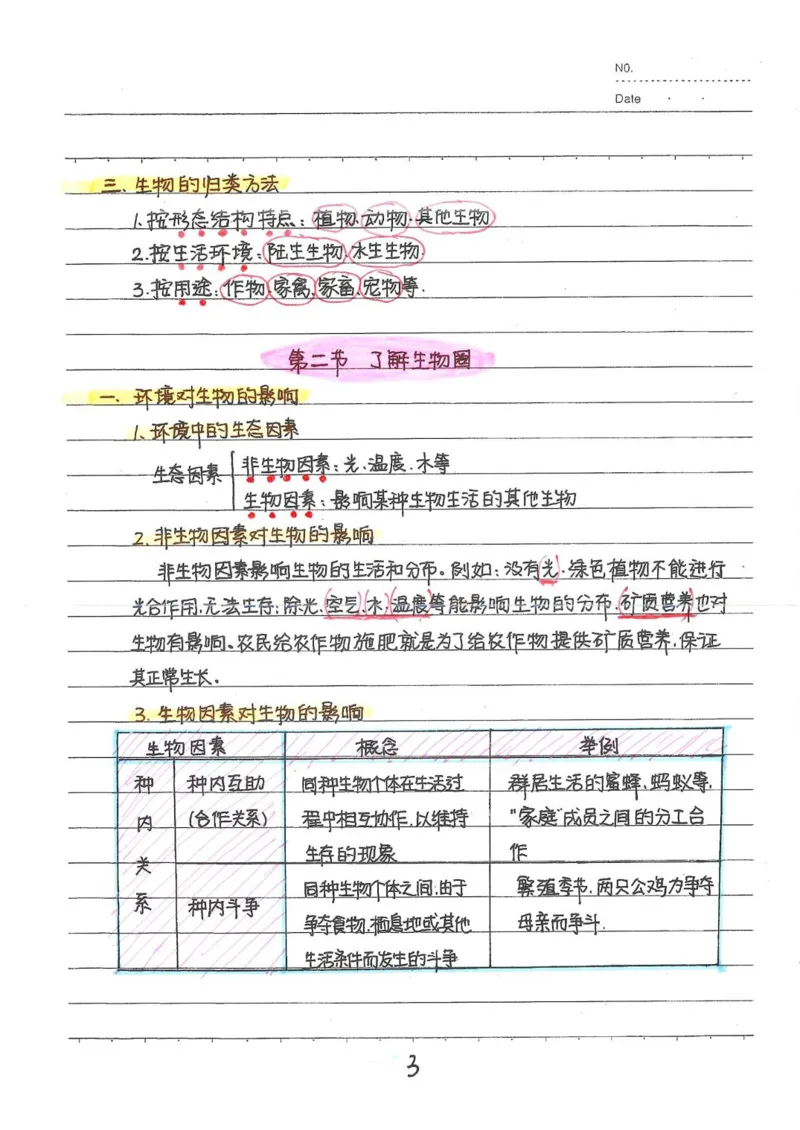 NO.
Date
三、生物的归类方法
1.按形态结构特点：植物、动物、其他生物
2.按生活环境：陆生生物、水生生物.
3.按用途：作物、家禽、家畜、宠物等.
第二节 了解生物圈
一、环境对生物的影响
1、环境中的生态因素
生态因素
非生物因素：光、温度、水等
生物因素：影响某种生物生活的其他生物
2.非生物因素对生物的影响
非生物因素影响生物的生活和分布。例如：没有光、绿色植物不能进行
光合作用,无法生存;除光、空气、水、温度等能影响生物的分布,矿质营养也对
生物有影响。农民给农作物施肥就是为了给农作物提供矿质营养,保证
其正常生长。
3.生物因素对生物的影响
生物因素 概念 举例
种内关系
种内互助
(合作关系)
同种生物个体在生活过
程中相互协作,以维持
生存的现象
群居生活的蜜蜂、蚂蚁等,
“家庭”成员之间的分工合
作
种内斗争
同种生物个体之间,由于
争夺食物、栖息地或其他
生活条件而发生的斗争
繁殖季节,两只公鸡为争夺
母亲而争斗.
3